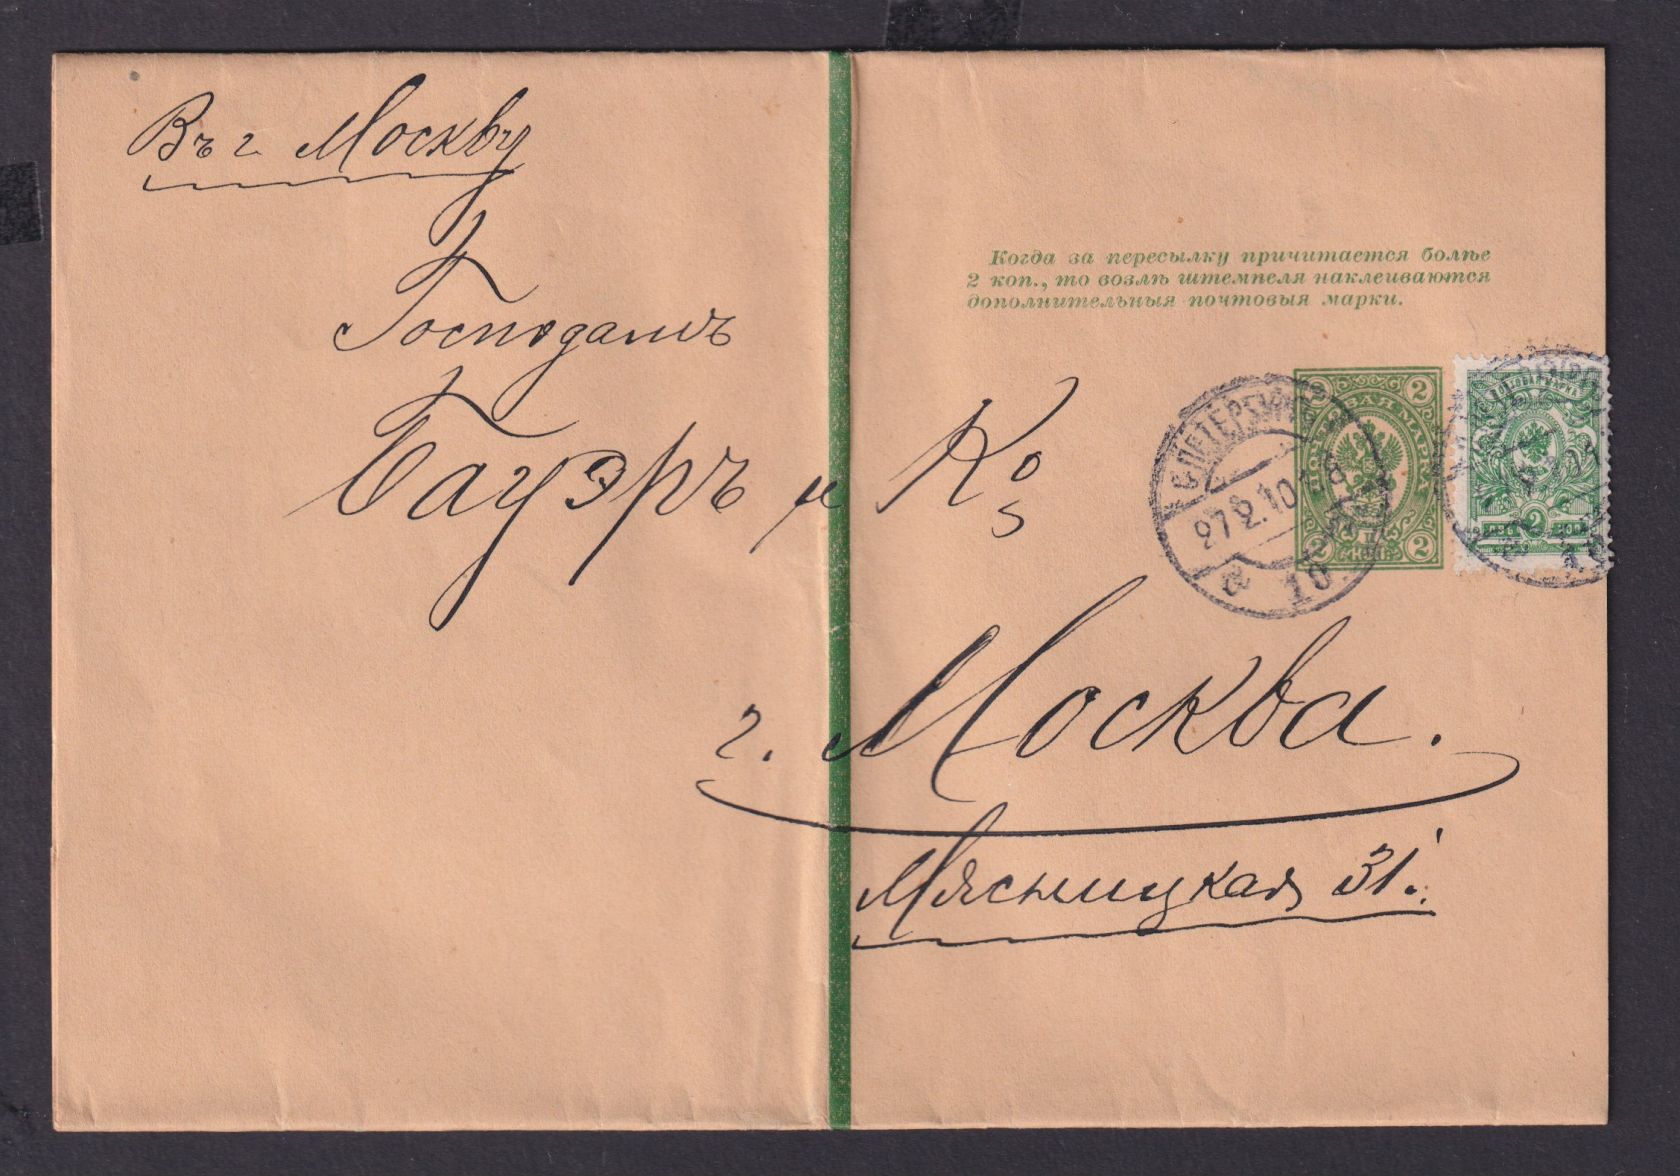 Въ г. Москву
Господамъ
Бауэръ и Ко
г. Москва.
Мясницкая 31.
Когда за пересылку причитается болѣе
2 коп., то возлѣ штемпеля наклеиваются
дополнительныя почтовыя марки.
С.ПЕТЕРБУРГЪ
27.2.10
10
ПОЧТОВАЯ МАРКА
2 2
2 2
ПОЧТОВАЯ МАРКА
ДВѢ 2 КОП.